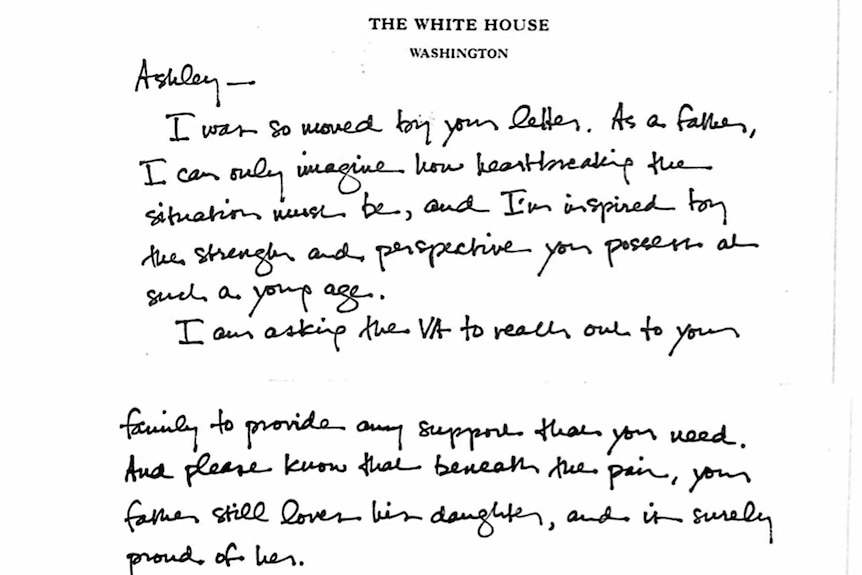 THE WHITE HOUSE
WASHINGTON
Ashley—
I was so moved by your letter. As a father,
I can only imagine how heartbreaking the
situation must be, and I'm inspired by
the strength and perspective you possess at
such a young age.
I am asking the VA to reach out to your
family to provide any support that you need.
And please know that beneath the pain, your
father still loves his daughter, and is surely
proud of her.